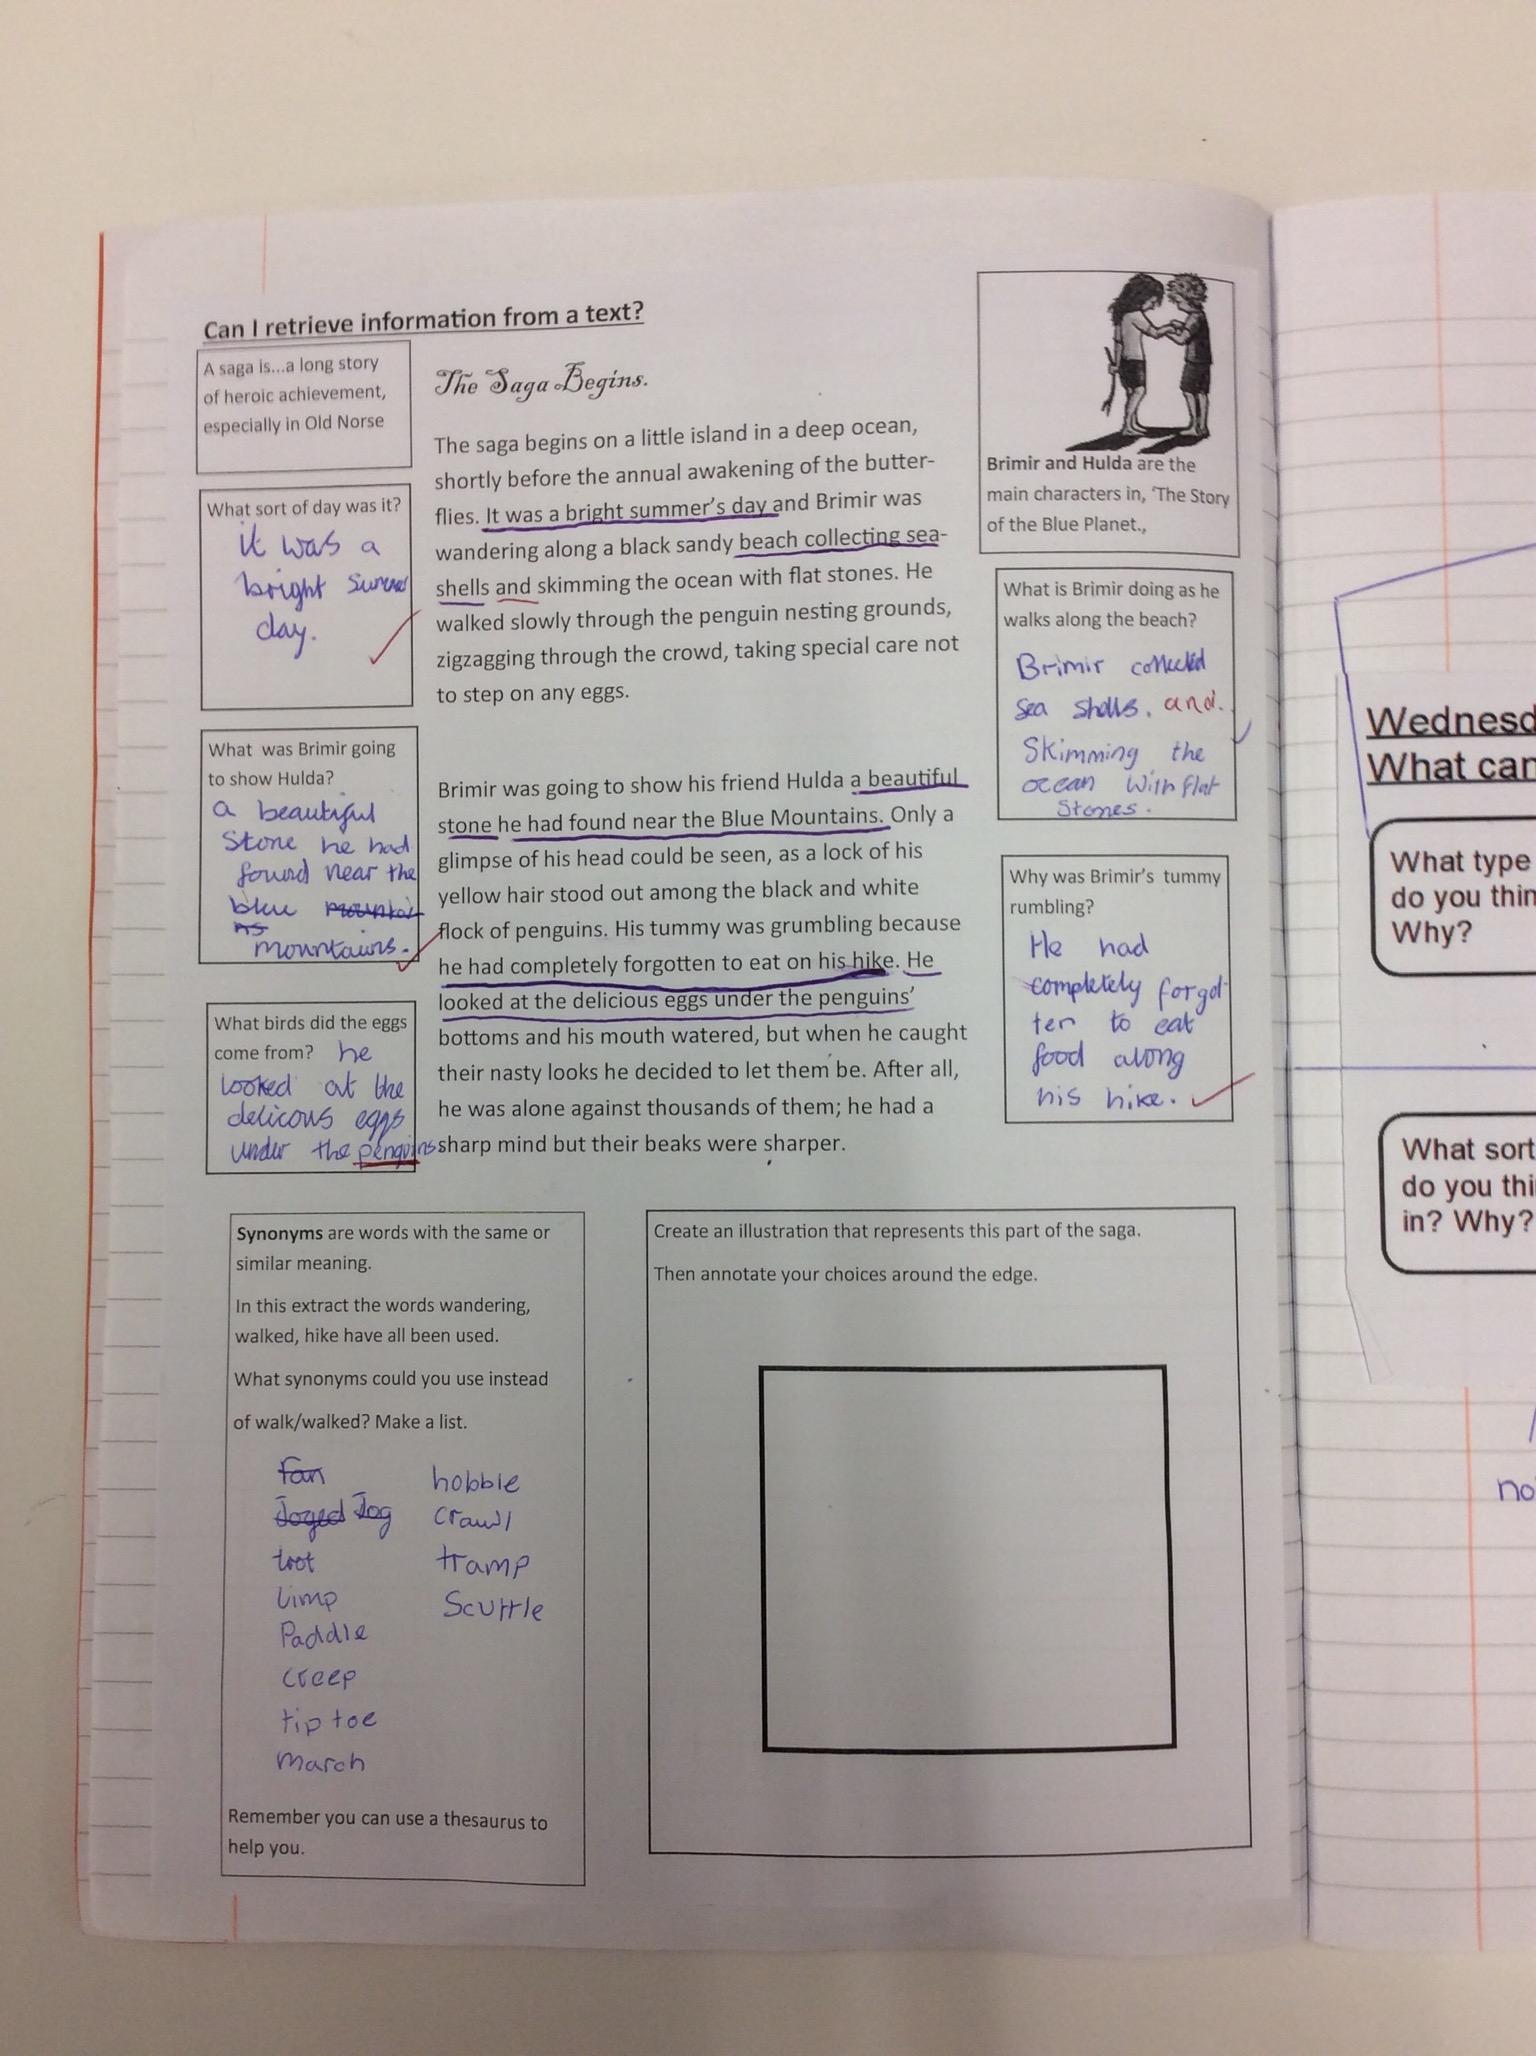 Can I retrieve information from a text?
A saga is...a long story
of heroic achievement,
especially in Old Norse
The Saga Begins.
The saga begins on a little island in a deep ocean,
shortly before the annual awakening of the butter-
flies. It was a bright summer's day and Brimir was
wandering along a black sandy beach collecting sea-
shells and skimming the ocean with flat stones. He
walked slowly through the penguin nesting grounds,
zigzagging through the crowd, taking special care not
to step on any eggs.
Brimir was going to show his friend Hulda a beautiful
stone he had found near the Blue Mountains. Only a
glimpse of his head could be seen, as a lock of his
yellow hair stood out among the black and white
flock of penguins. His tummy was grumbling because
he had completely forgotten to eat on his hike. He
looked at the delicious eggs under the penguins'
bottoms and his mouth watered, but when he caught
their nasty looks he decided to let them be. After all,
he was alone against thousands of them; he had a
sharp mind but their beaks were sharper.
Brimir and Hulda are the
main characters in, 'The Story
of the Blue Planet.,
What sort of day was it?
it was a
bright
day.
What was Brimir going
to show Hulda?
a beautiful
Stone he had
found near the
blue
mountains.
What birds did the eggs
come from? he
looked at the
delicous eggs
under the penguins
What is Brimir doing as he
walks along the beach?
Brimir collected
sea shells. and.
Skimming the
ocean with flat
Stones.
Why was Brimir's tummy
rumbling?
He had
completely forgot
ten to eat
food along
his hike.
Synonyms are words with the same or
similar meaning.
In this extract the words wandering,
walked, hike have all been used.
What synonyms could you use instead
of walk/walked? Make a list.
Joged Jog
trot
limp
Paddle
creep
tip toe
march
hobble
crawl
tramp
Scuttle
Remember you can use a thesaurus to
help you.
Create an illustration that represents this part of the saga.
Then annotate your choices around the edge.
Wednesd
What can
What type
do you thin
Why?
What sort
do you thi
in? Why?
no